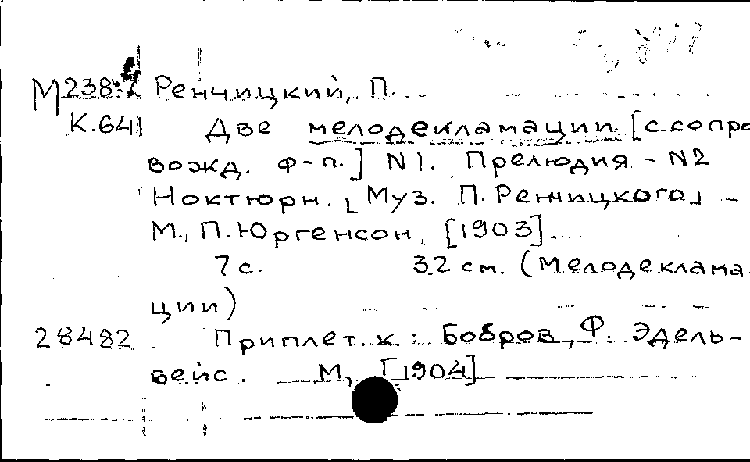 М238 Ренчицкий, П.
К.641 Две мелодекламации [с сопро
вожд. ф-п.] N1. Прелюдия - N2
Ноктюрн. [Муз. П. Ренчицкого] -
М., П. Юргенсон, [1903]
7 с. 32 см. (Мелодеклама
ции)
28482 Приплет. к: Бобров, Ф. Эдель-
вейс. М., [1904]